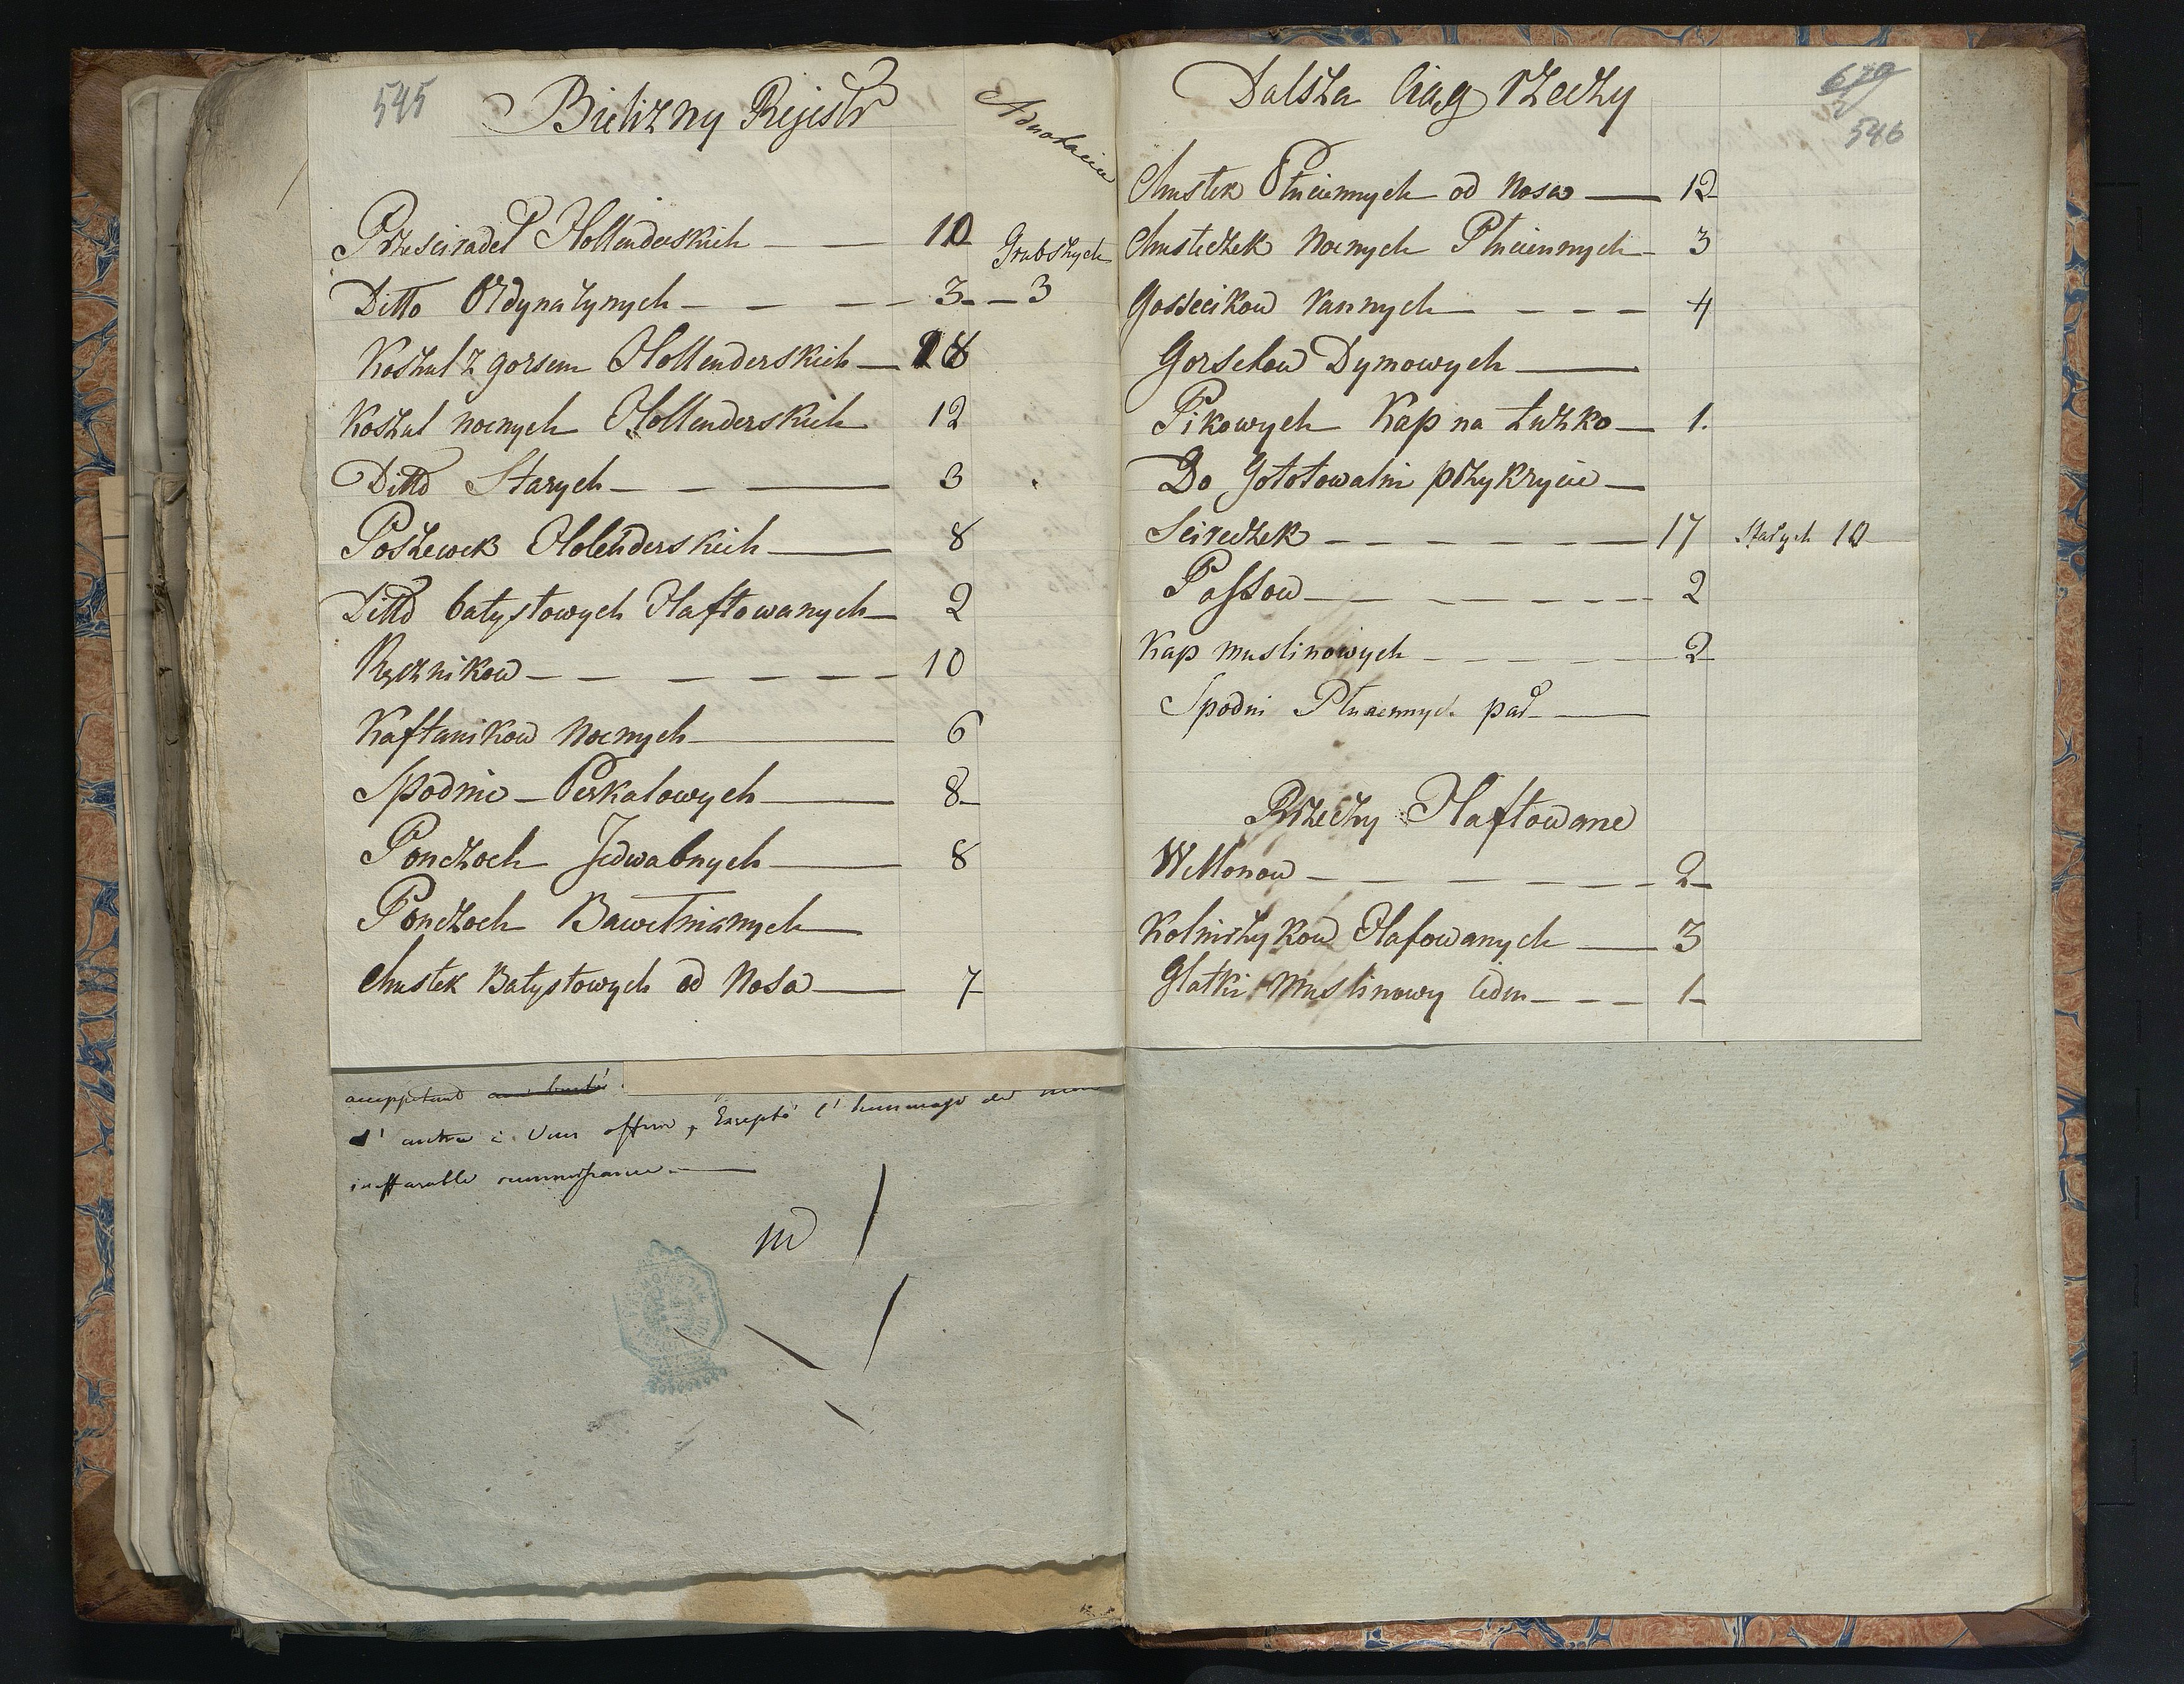 545
Bielizny Rejestr
Adnotacia
Przescieradeł Hollenderskich — — 10
Grubszych
Ditto Ordynarynych — — — — 3 — 3
Koszul z gorsem Hollenderskich — 18
Koszul nocnych Hollenderskich 12
Ditto Starych — — — 3
Poszewek Holenderskich — 8
Ditto batystowych Haftowanych — 2
Ręcznikow — — — — — — 10
Kaftanikow Nocnych — 6
Spodnic — Perkalowych — 8
Ponczoch Jedwabnych — 8
Ponczoch Bawełnianych —
Chustek Batystowych od Nosa — 7
d'autre à Vous offrir, Excepté l'hommage de mon
ineffarable
Dalsza Ciąg Rzeczy
679
546
Chustek Płuciennych od Nosa — 12
Chusteczek Nocnych Płuciennych — 3
Gorsecikow rannych — — — — 4
Gorsetow Dymowych —
Pikowych Kap na Łużko — 1.
Do Gotowalni przykrycie —
Scireczek — — — — — — 17 Starych 10
Passow — — — — — — 2
Kap muslinowych — — — — 2
Spodni Płuciennych par —
Rzeczy Haftowane
Wellonow — — — — — — 2
Kolnirzykow Hafowanych — 3
Glatki Muslinowy ieden — — — 1